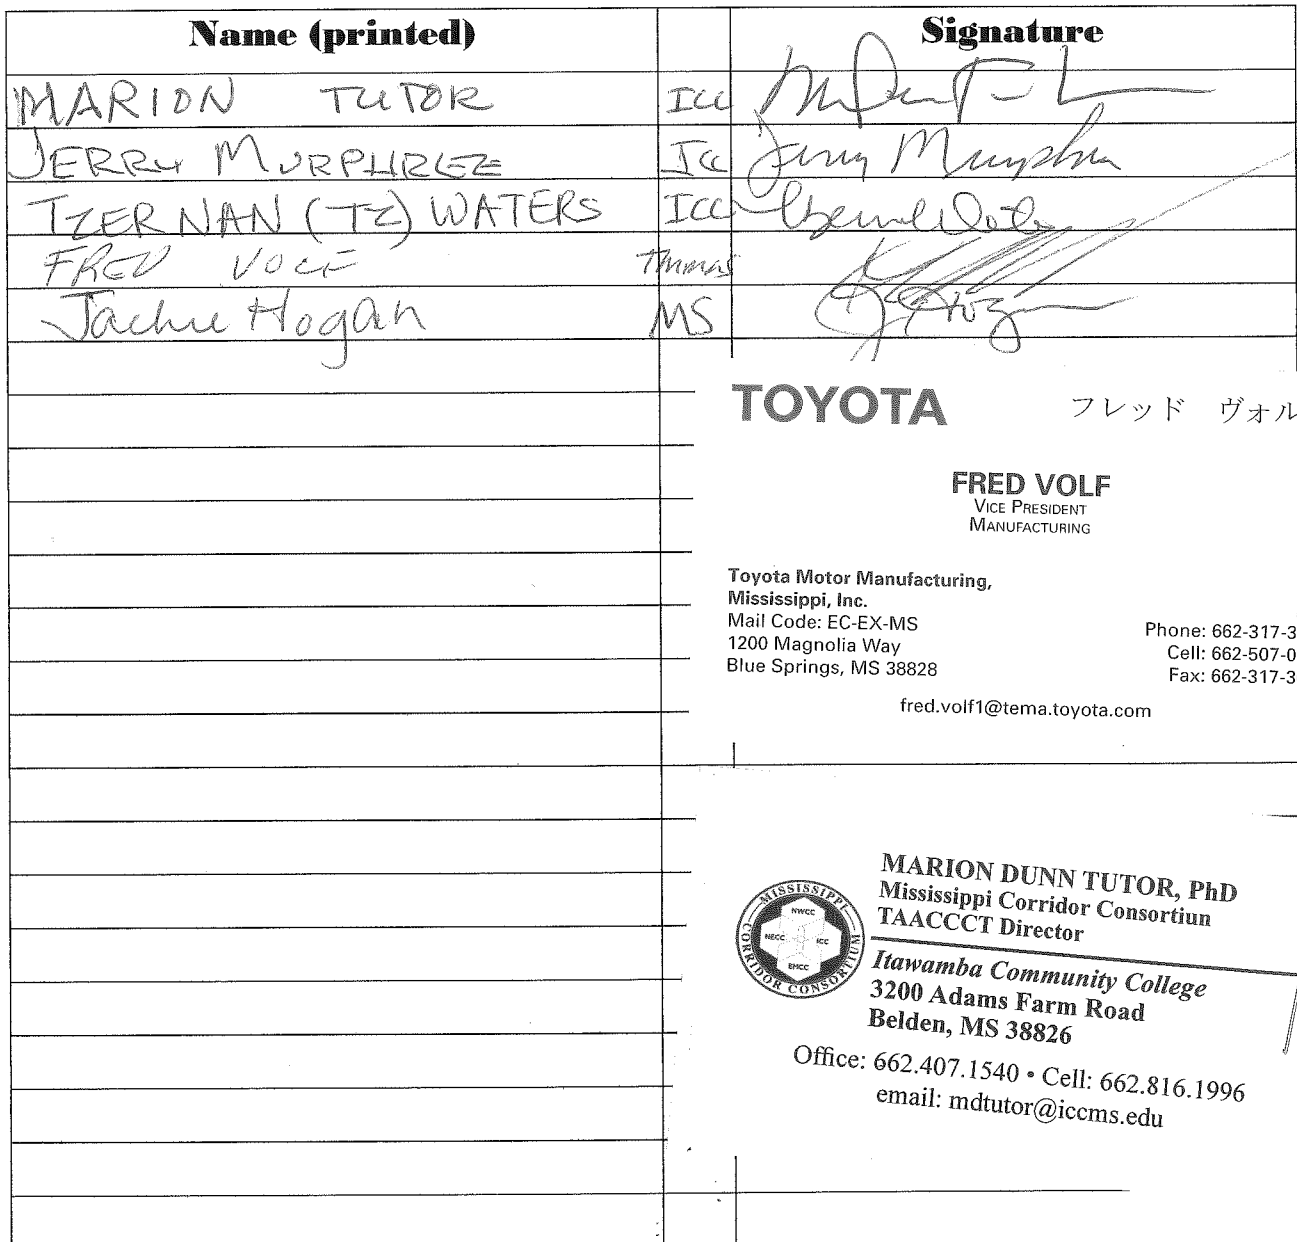 Name (printed) Signature
MARION TUTOR ICC
JERRY MURPHREE ICC Jerry Murphree
TZERNAN (TZ) WATERS ICC
FRED VOLF
Jackie Hogan MS J Hogan
TOYOTA フレッド ヴォル
FRED VOLF
VICE PRESIDENT
MANUFACTURING
Toyota Motor Manufacturing,
Mississippi, Inc.
Mail Code: EC-EX-MS
1200 Magnolia Way
Blue Springs, MS 38828
Phone: 662-317-3
Cell: 662-507-0
Fax: 662-317-3
fred.volf1@tema.toyota.com
MISSISSIPPI
CORRIDOR CONSORTIUM
NWCC
NECC ICC
EMCC
MARION DUNN TUTOR, PhD
Mississippi Corridor Consortiun
TAACCCT Director
Itawamba Community College
3200 Adams Farm Road
Belden, MS 38826
Office: 662.407.1540 • Cell: 662.816.1996
email: mdtutor@iccms.edu